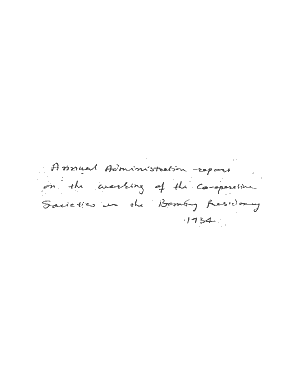 Annual Administration report
on the working of the Co-operative
Societies in the Bombay Presidency
1934